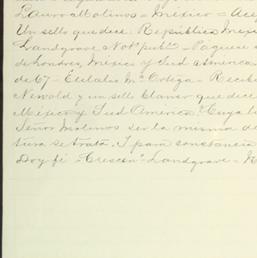 Lauro Molinos - Mexico - Ace
Un sello que dice: Republica Mexi
Landgrave Not. publ - Paguese a
de Londres, Mexico y Sud America
de 67 - Eulalio Mª Ortega - Recibi
Newald y un sello blanco que dice
Mexico y Sud America
Señor Molinos ser la misma de
tura se trata. I para constancia
Doy fé - Crescenº Landgrave - N